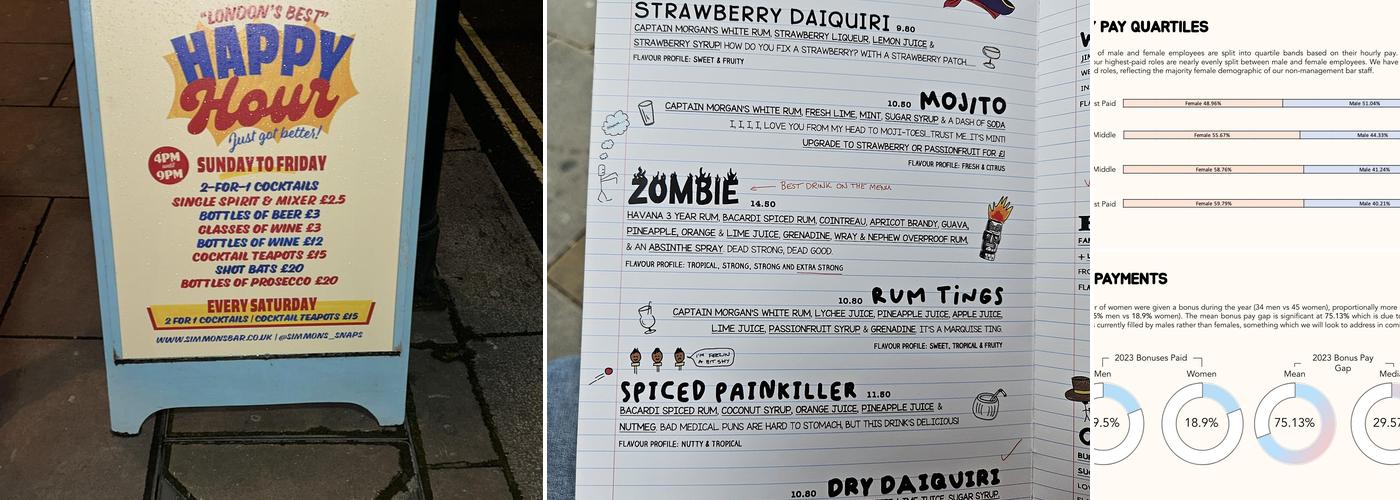 "LONDON'S BEST"
HAPPY
Hour
Just got better!
4PM
until
9PM
SUNDAY TO FRIDAY
2-FOR-1 COCKTAILS
SINGLE SPIRIT & MIXER £2.5
BOTTLES OF BEER £3
GLASSES OF WINE £3
BOTTLES OF WINE £12
COCKTAIL TEAPOTS £15
SHOT BATS £20
BOTTLES OF PROSECCO £20
EVERY SATURDAY
2 FOR 1 COCKTAILS | COCKTAIL TEAPOTS £15
WWW.SIMMONSBAR.CO.UK | @SIMMONS_SNAPS
STRAWBERRY DAIQUIRI 9.80
CAPTAIN MORGAN'S WHITE RUM, STRAWBERRY LIQUEUR, LEMON JUICE &
STRAWBERRY SYRUP! HOW DO YOU FIX A STRAWBERRY? WITH A STRAWBERRY PATCH....
FLAVOUR PROFILE: SWEET & FRUITY
10.80 MOJITO
CAPTAIN MORGAN'S WHITE RUM, FRESH LIME, MINT, SUGAR SYRUP & A DASH OF SODA
I, I, I, I, LOVE YOU FROM MY HEAD TO MOJI-TOES!...TRUST ME...IT'S MINT!
UPGRADE TO STRAWBERRY OR PASSIONFRUIT FOR £1
FLAVOUR PROFILE: FRESH & CITRUS
ZOMBIE 14.50
BEST DRINK ON THE MENU
HAVANA 3 YEAR RUM, BACARDI SPICED RUM, COINTREAU, APRICOT BRANDY, GUAVA,
PINEAPPLE, ORANGE & LIME JUICE, GRENADINE, WRAY & NEPHEW OVERPROOF RUM,
& AN ABSINTHE SPRAY. DEAD STRONG, DEAD GOOD.
FLAVOUR PROFILE: TROPICAL, STRONG, STRONG AND EXTRA STRONG
10.80 RUM TINGS
CAPTAIN MORGAN'S WHITE RUM, LYCHEE JUICE, PINEAPPLE JUICE, APPLE JUICE,
LIME JUICE, PASSIONFRUIT SYRUP & GRENADINE. IT'S A MARQUISE TING.
FLAVOUR PROFILE: SWEET, TROPICAL & FRUITY
I'M FEELIN
A BIT SHY
SPICED PAINKILLER 11.80
BACARDI SPICED RUM, COCONUT SYRUP, ORANGE JUICE, PINEAPPLE JUICE &
NUTMEG. BAD MEDICAL PUNS ARE HARD TO STOMACH, BUT THIS DRINK'S DELICIOUS!
FLAVOUR PROFILE: NUTTY & TROPICAL
10.80 DRY DAIQUIRI
LIME JUICE, SUGAR SYRUP,
Y PAY QUARTILES
of male and female employees are split into quartile bands based on their hourly pay.
ur highest-paid roles are nearly evenly split between male and female employees. We have
d roles, reflecting the majority female demographic of our non-management bar staff.
st Paid Female 48.96% Male 51.04%
Middle Female 55.67% Male 44.33%
Middle Female 58.76% Male 41.24%
st Paid Female 59.79% Male 40.21%
PAYMENTS
r of women were given a bonus during the year (34 men vs 45 women), proportionally more
5% men vs 18.9% women). The mean bonus pay gap is significant at 75.13% which is due to
currently filled by males rather than females, something which we will look to address in com
2023 Bonuses Paid
2023 Bonus Pay
Gap
Men Women Mean Medi
9.5% 18.9% 75.13% 29.57